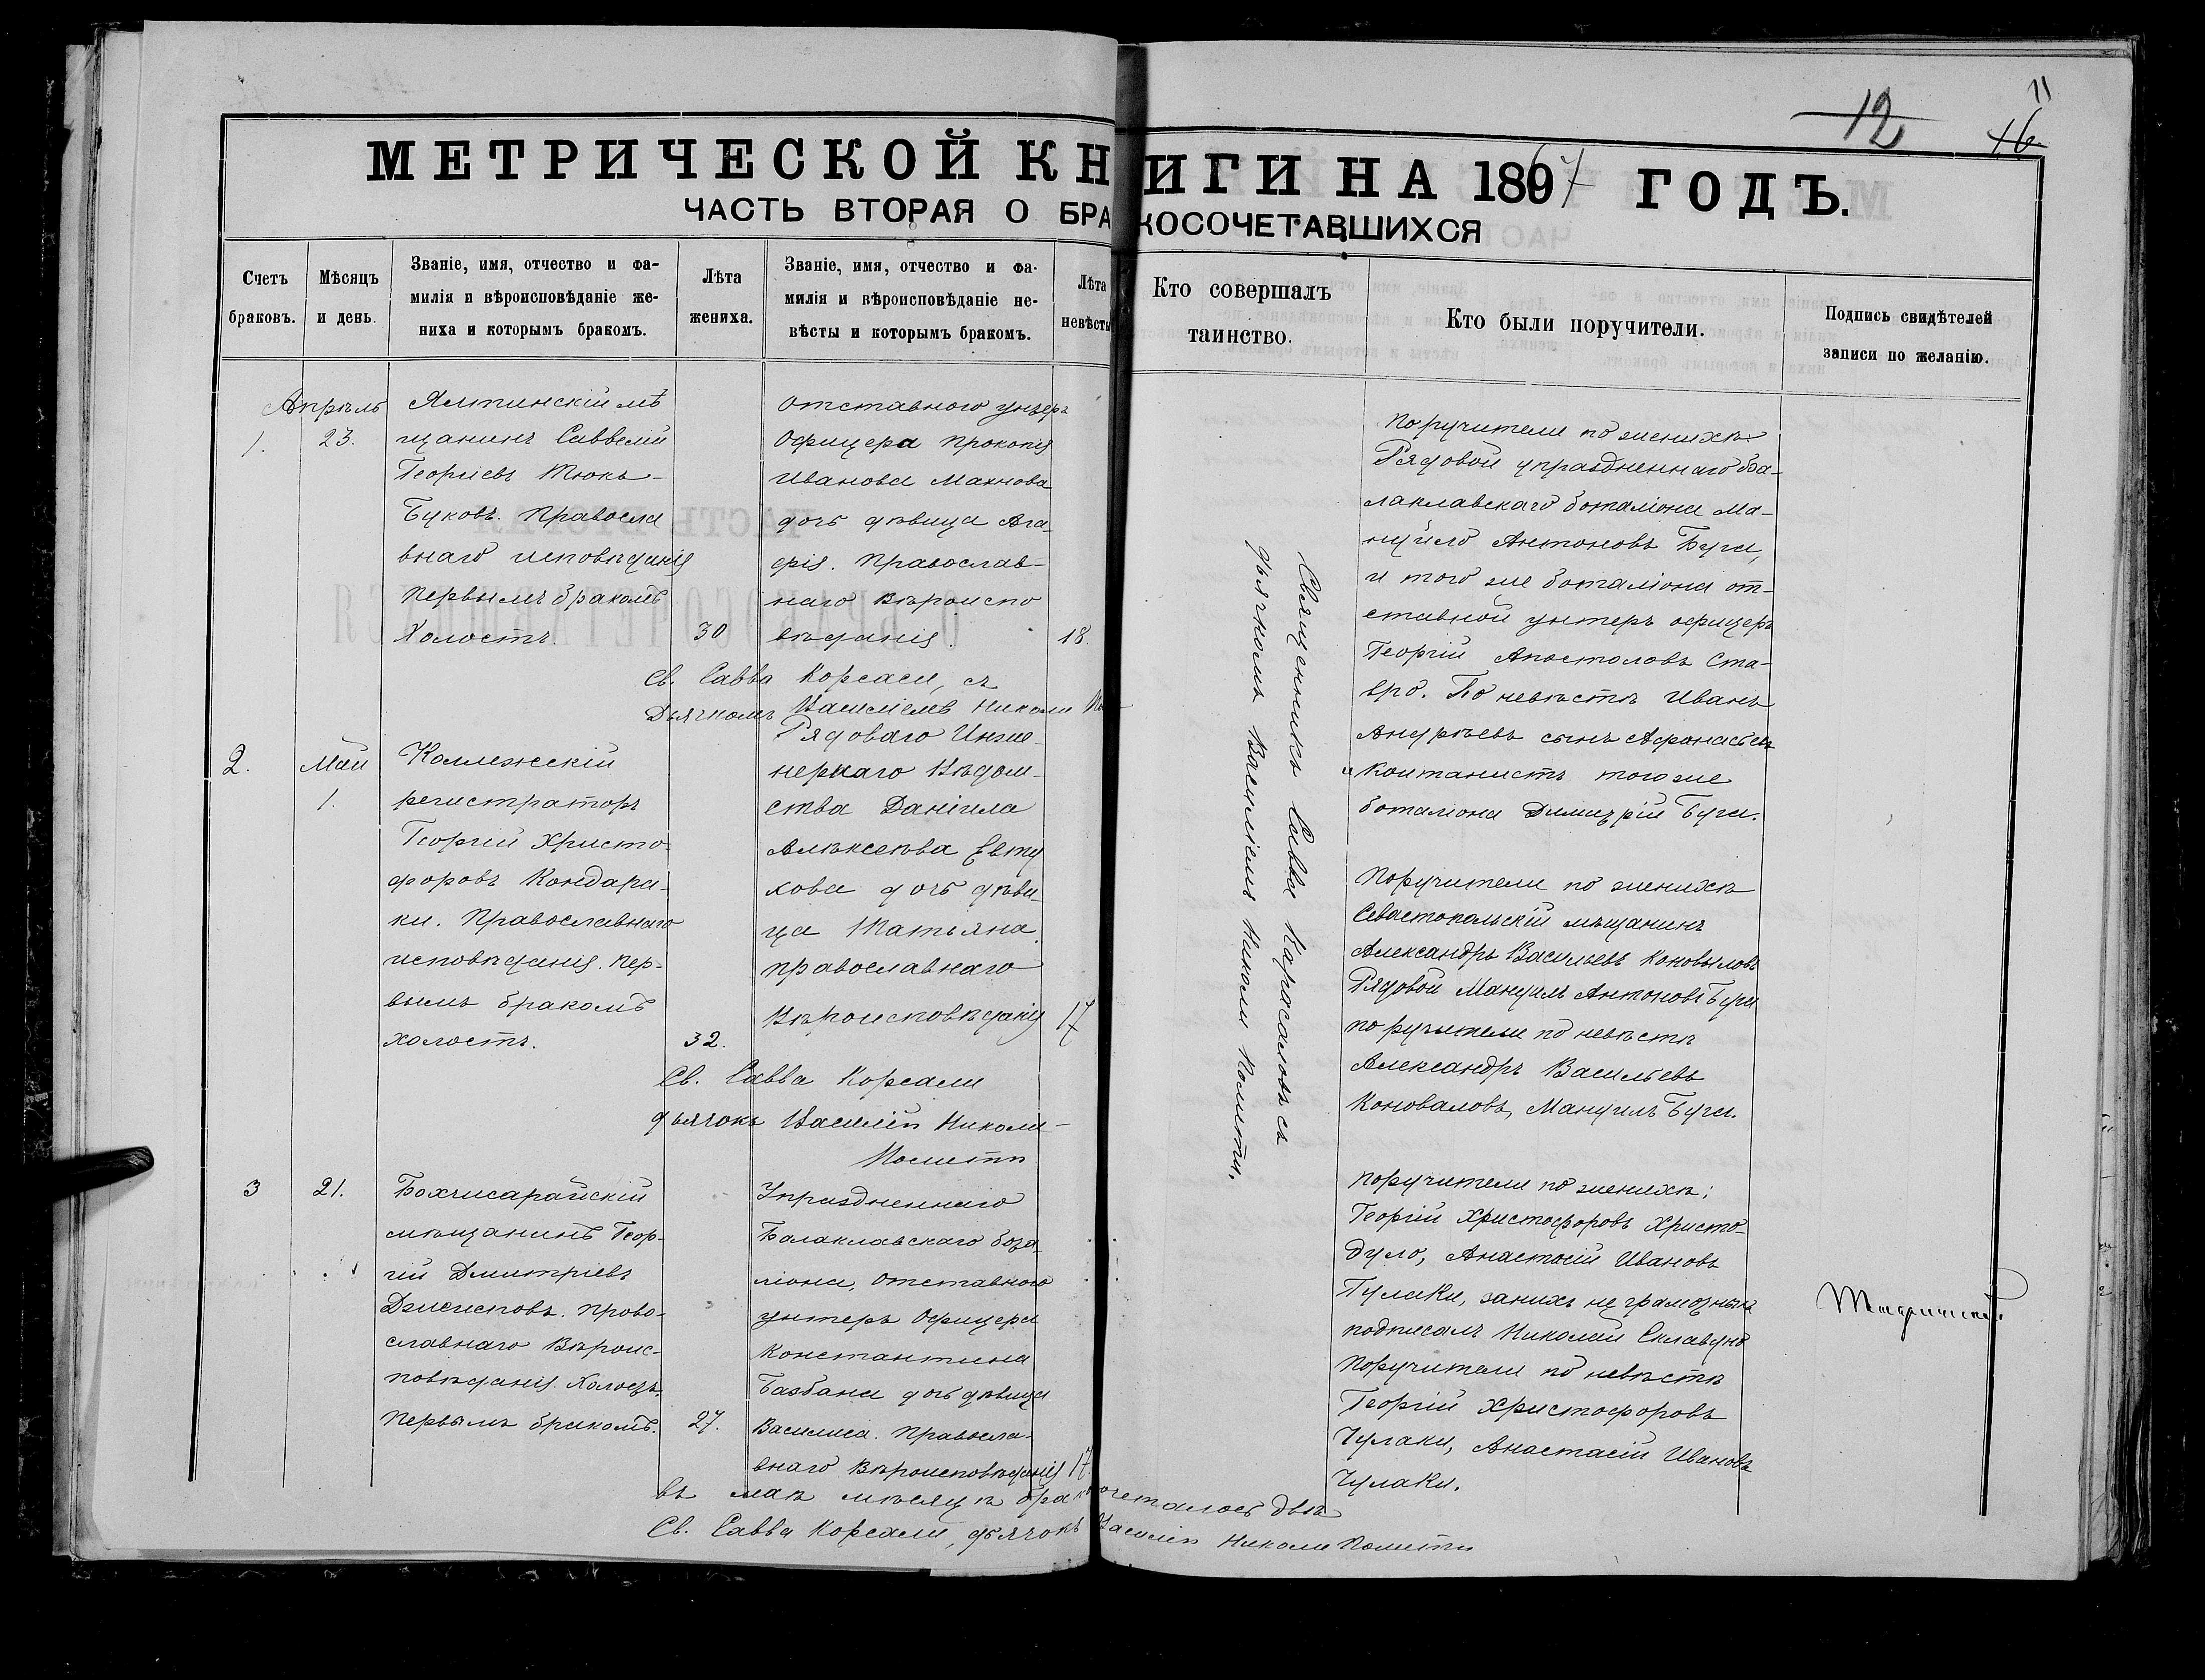 12
11
16
МЕТРИЧЕСКОЙ КНИГИ НА 1867 ГОДЪ.
ЧАСТЬ ВТОРАЯ О БРАКОСОЧЕТАВШИХСЯ
Счетъ браковъ.
Мѣсяцъ и день.
Званіе, имя, отчество и фа-
милія и вѣроисповѣданіе же-
ниха и которымъ бракомъ.
Лѣта жениха.
Званіе, имя, отчество и фа-
милія и вѣроисповѣданіе не-
вѣсты и которымъ бракомъ.
Лѣта невѣсты
Кто совершалъ
таинство.
Кто были поручители.
Подпись свидѣтелей
записи по желанію.
1.
Апрѣль
23.
Ялтинскій мѣ
щанинъ Савелій
Георгіевъ Тюкъ-
Буковъ. Правосла
внаго исповѣданія
Первымъ бракомъ
Холостъ.
30
Отставного унтеръ
Офицера Прокопія
Иванова Махнова
дочь дѣвица Ага-
фія. Православ-
наго Вѣроиспо
вѣданія.
18.
Св. Савва Корсали, съ
Дьячкомъ Василіемъ Николи
Священникъ Савва Карасаловъ съ
дьячкомъ Василіемъ Николи Помити.
Поручители по женихѣ
Рядовой упраздненнаго ба-
лаклавскаго баталіона Ма-
нуйло Антоновъ Буги,
и того же баталіона от-
ставной унтеръ офицеръ
Георгій Апостоловъ Ста-
вро. По невѣстѣ Иванъ
Андрѣевъ сынъ Афонасьевъ
и Контанистъ того же
баталіона Димитрій Буги.
2.
Маи
1.
Коллежскій
регистраторъ
Георгій Христо-
форовъ Кондара-
ки. Православнаго
исповѣданія. Пер-
вымъ бракомъ
холостъ.
32.
Рядоваго Инже-
нернаго Вѣдом-
ства Даніила
Алѣксѣева Евту
хова дочь дѣви-
ца Татьяна
православнаго
Вѣроисповѣданія
17
Св. Савва Корсали
дьячокъ Василій Николи-
Помити
Поручители по женихѣ
Севастопольскій мѣщанинъ
Александръ Васильевъ Коноваловъ
Рядовой Мануилъ Антоновъ Буги
поручители по невѣстѣ
Александръ Васильевъ
Коноваловъ, Мануилъ Буги.
3
21.
Бахчисарайскій
мѣщанинъ Геор-
гій Дмитріевъ
Джисиповъ. Право-
славнаго Вѣроис-
повѣданія. Холостъ.
Первымъ бракомъ.
27.
Упраздненнаго
Балаклавскаго бата-
ліона, отставного
унтеръ Офицера
Константина
Базбана дочь дѣвица
Василиса. Правосла-
внаго Вѣроисповѣданія
17.
поручители по женихѣ:
Георгій Христофоровъ Христо-
дуло, Анастасій Ивановъ
Гулаки, за нихъ неграмотныхъ
подписалъ Николай Склавуно
Поручители по невѣстѣ
Георгій Христофоровъ
Чулаки, Анастасій Ивановъ
Чулаки.
въ маѣ мѣсяцѣ бракосочеталось двѣ
Св. Савва Корсали, дьячокъ Василій Николи Помити